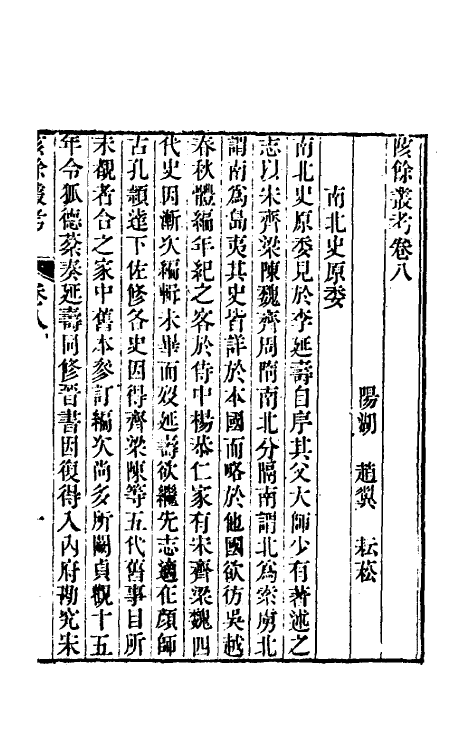 陔餘叢考卷八
陽湖 趙翼 耘菘
南北史原委
南北史原委見於李延壽自序其父大師少有著述之
志以宋齊梁陳魏齊周隋南北分隔南謂北爲索虜北
謂南爲島夷其史皆詳於本國而略於他國欲彷吳越
春秋體編年紀之客於侍中楊恭仁家有宋齊梁魏四
代史因漸次編輯未畢而歿延壽欲繼先志適在顏師
古孔穎達下佐修各史因得齊梁陳等五代舊事目所
未覩者合之家中舊本參訂編次尚多所闕貞觀十五
年令狐德棻奏延壽同修晉書因復得入內府勘究宋
陔餘叢考
卷八
一